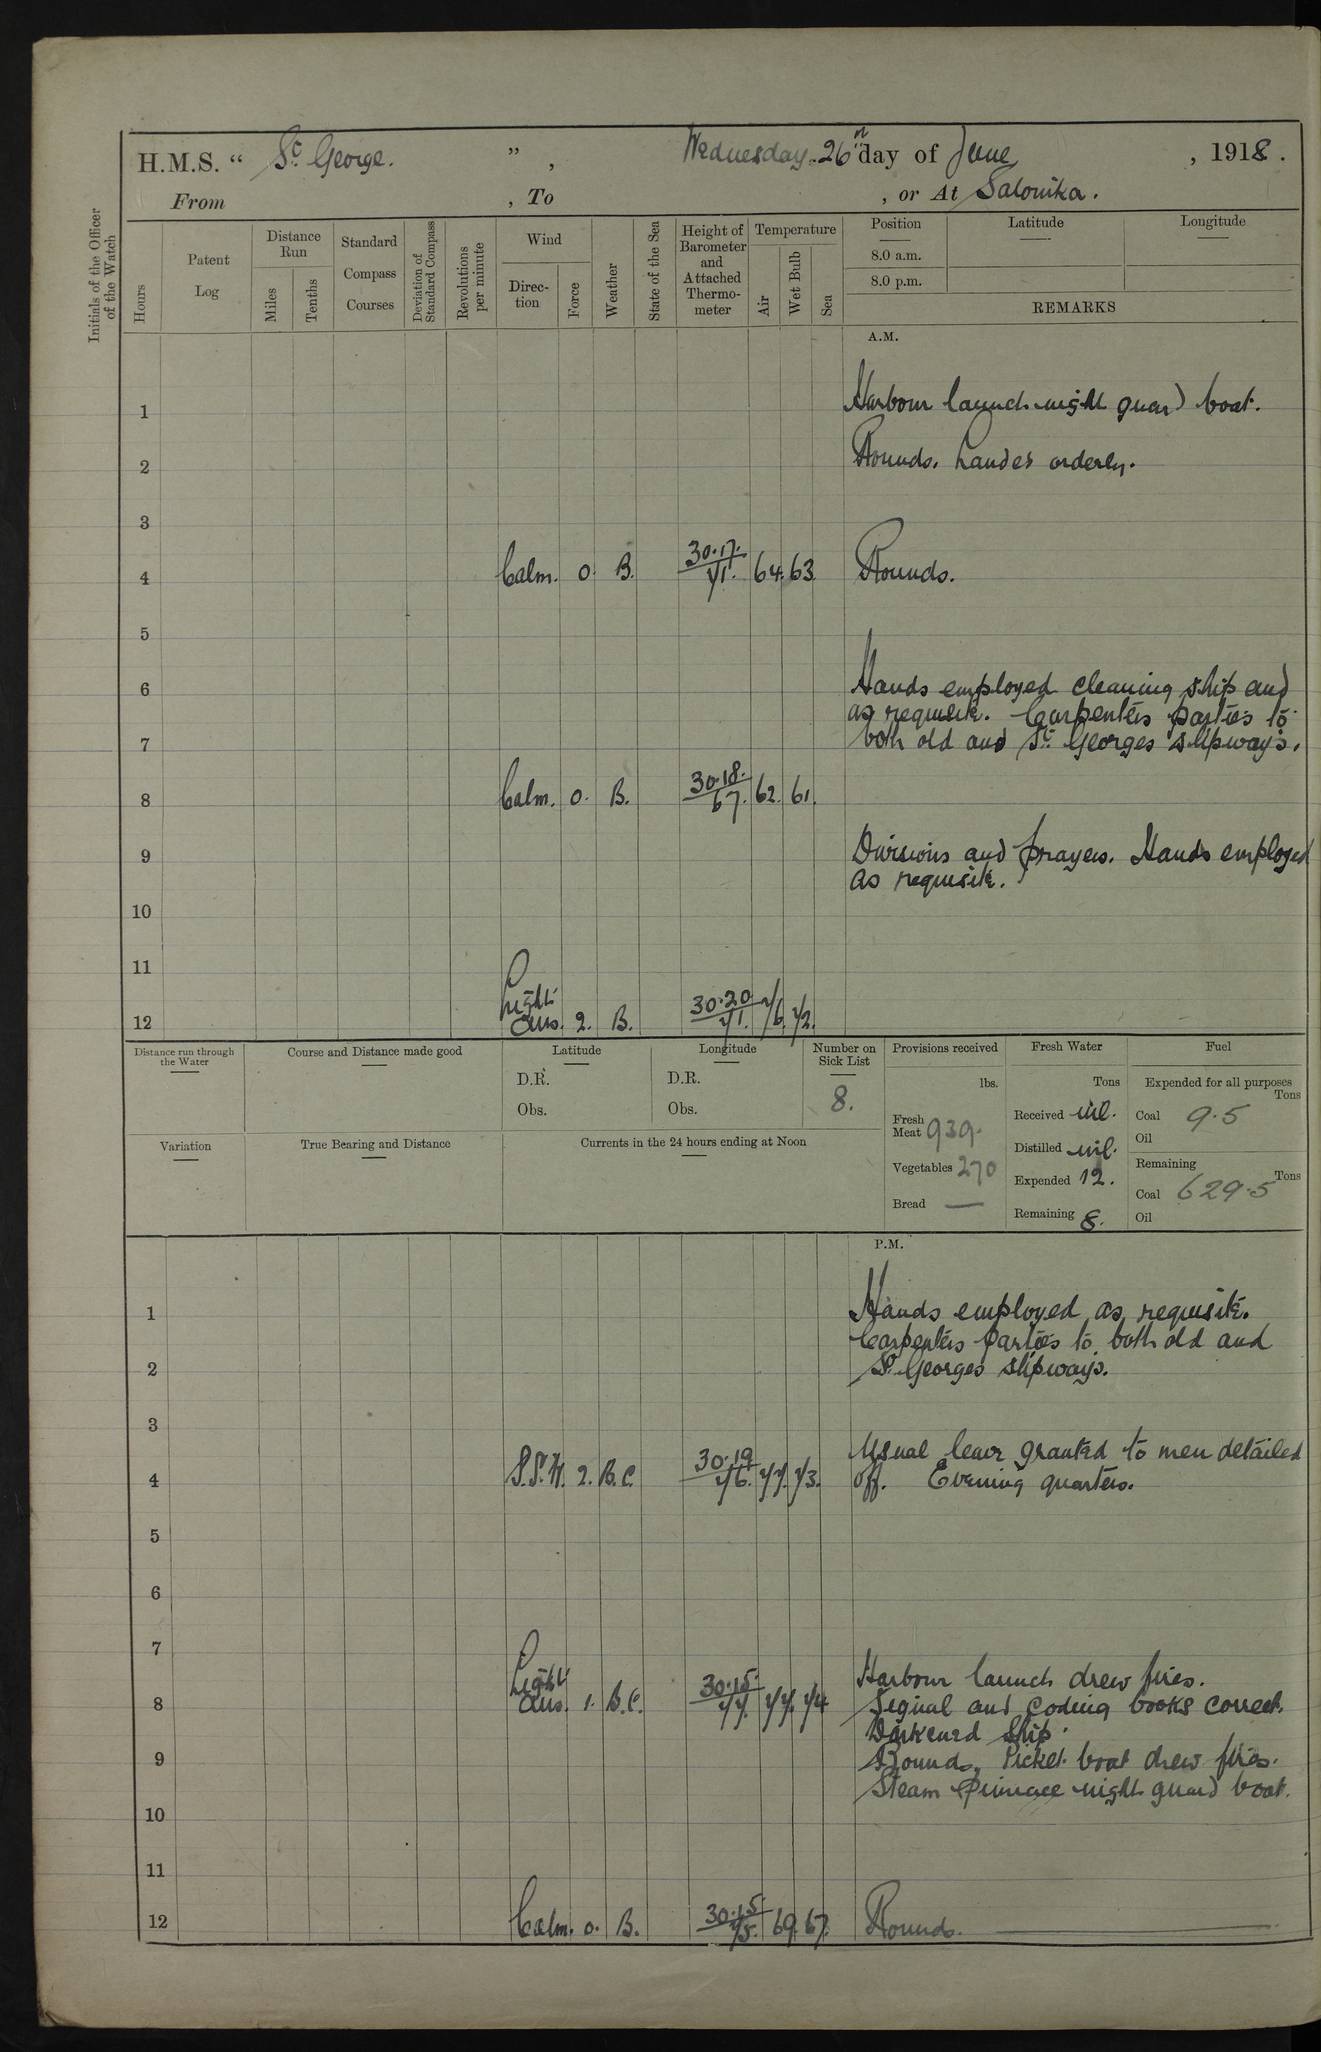 H.M.S. “ St. George. ” , Wednesday 26th day of June , 1918.
From , To , or At Salonika.
Initials of the Officer of the Watch
Hours
Patent Log
Distance Run
Miles
Tenths
Standard Compass Courses
Deviation of Standard Compass
Revolutions per minute
Wind
Direction
Force
Weather
State of the Sea
Height of Barometer and Attached Thermometer
Temperature
Air
Wet Bulb
Sea
Position
8.0 a.m.
8.0 p.m.
Latitude
Longitude
REMARKS
A.M.
1 Harbour launch night guard boat.
2 Rounds. Landes orderly.
3
4 Calm. 0. B. 30.17. 71. 64. 63. Rounds.
5
6 Hands employed cleaning ship and
as requisite. Carpenters parties to
7 both old and St. Georges slipways.
8 Calm. 0. B. 30.18. 67. 62. 61.
9 Divisions and prayers. Hands employed
as requisite.
10
11
12 Light airs. 2. B. 30.20 71. 76. 72.
Distance run through the Water
Course and Distance made good
Latitude
D.R.
Obs.
Longitude
D.R.
Obs.
Number on Sick List
8.
Provisions received
lbs.
Fresh Meat 939.
Vegetables 270
Bread —
Fresh Water
Tons
Received nil.
Distilled nil.
Expended 12.
Remaining 8.
Fuel
Expended for all purposes
Tons
Coal 9.5
Oil
Remaining
Tons
Coal 629.5
Oil
Variation
True Bearing and Distance
Currents in the 24 hours ending at Noon
P.M.
1 Hands employed as requisite.
Carpenters parties to both old and
2 St. Georges slipways.
3
Usual leave granted to men detailed
4 S.S.W. 2. B.C. 30.19 76. 77. 73. off. Evening quarters.
5
6
7
Harbour launch drew fires.
8 Light airs. 1. B.C. 30.15. 77. 77. 74 Signal and coding books correct.
Darkened ship.
9 Rounds. Picket boat drew fires.
Steam pinnace night guard boat.
10
11
12 Calm. 0. B. 30.15. 75. 69. 67. Rounds.